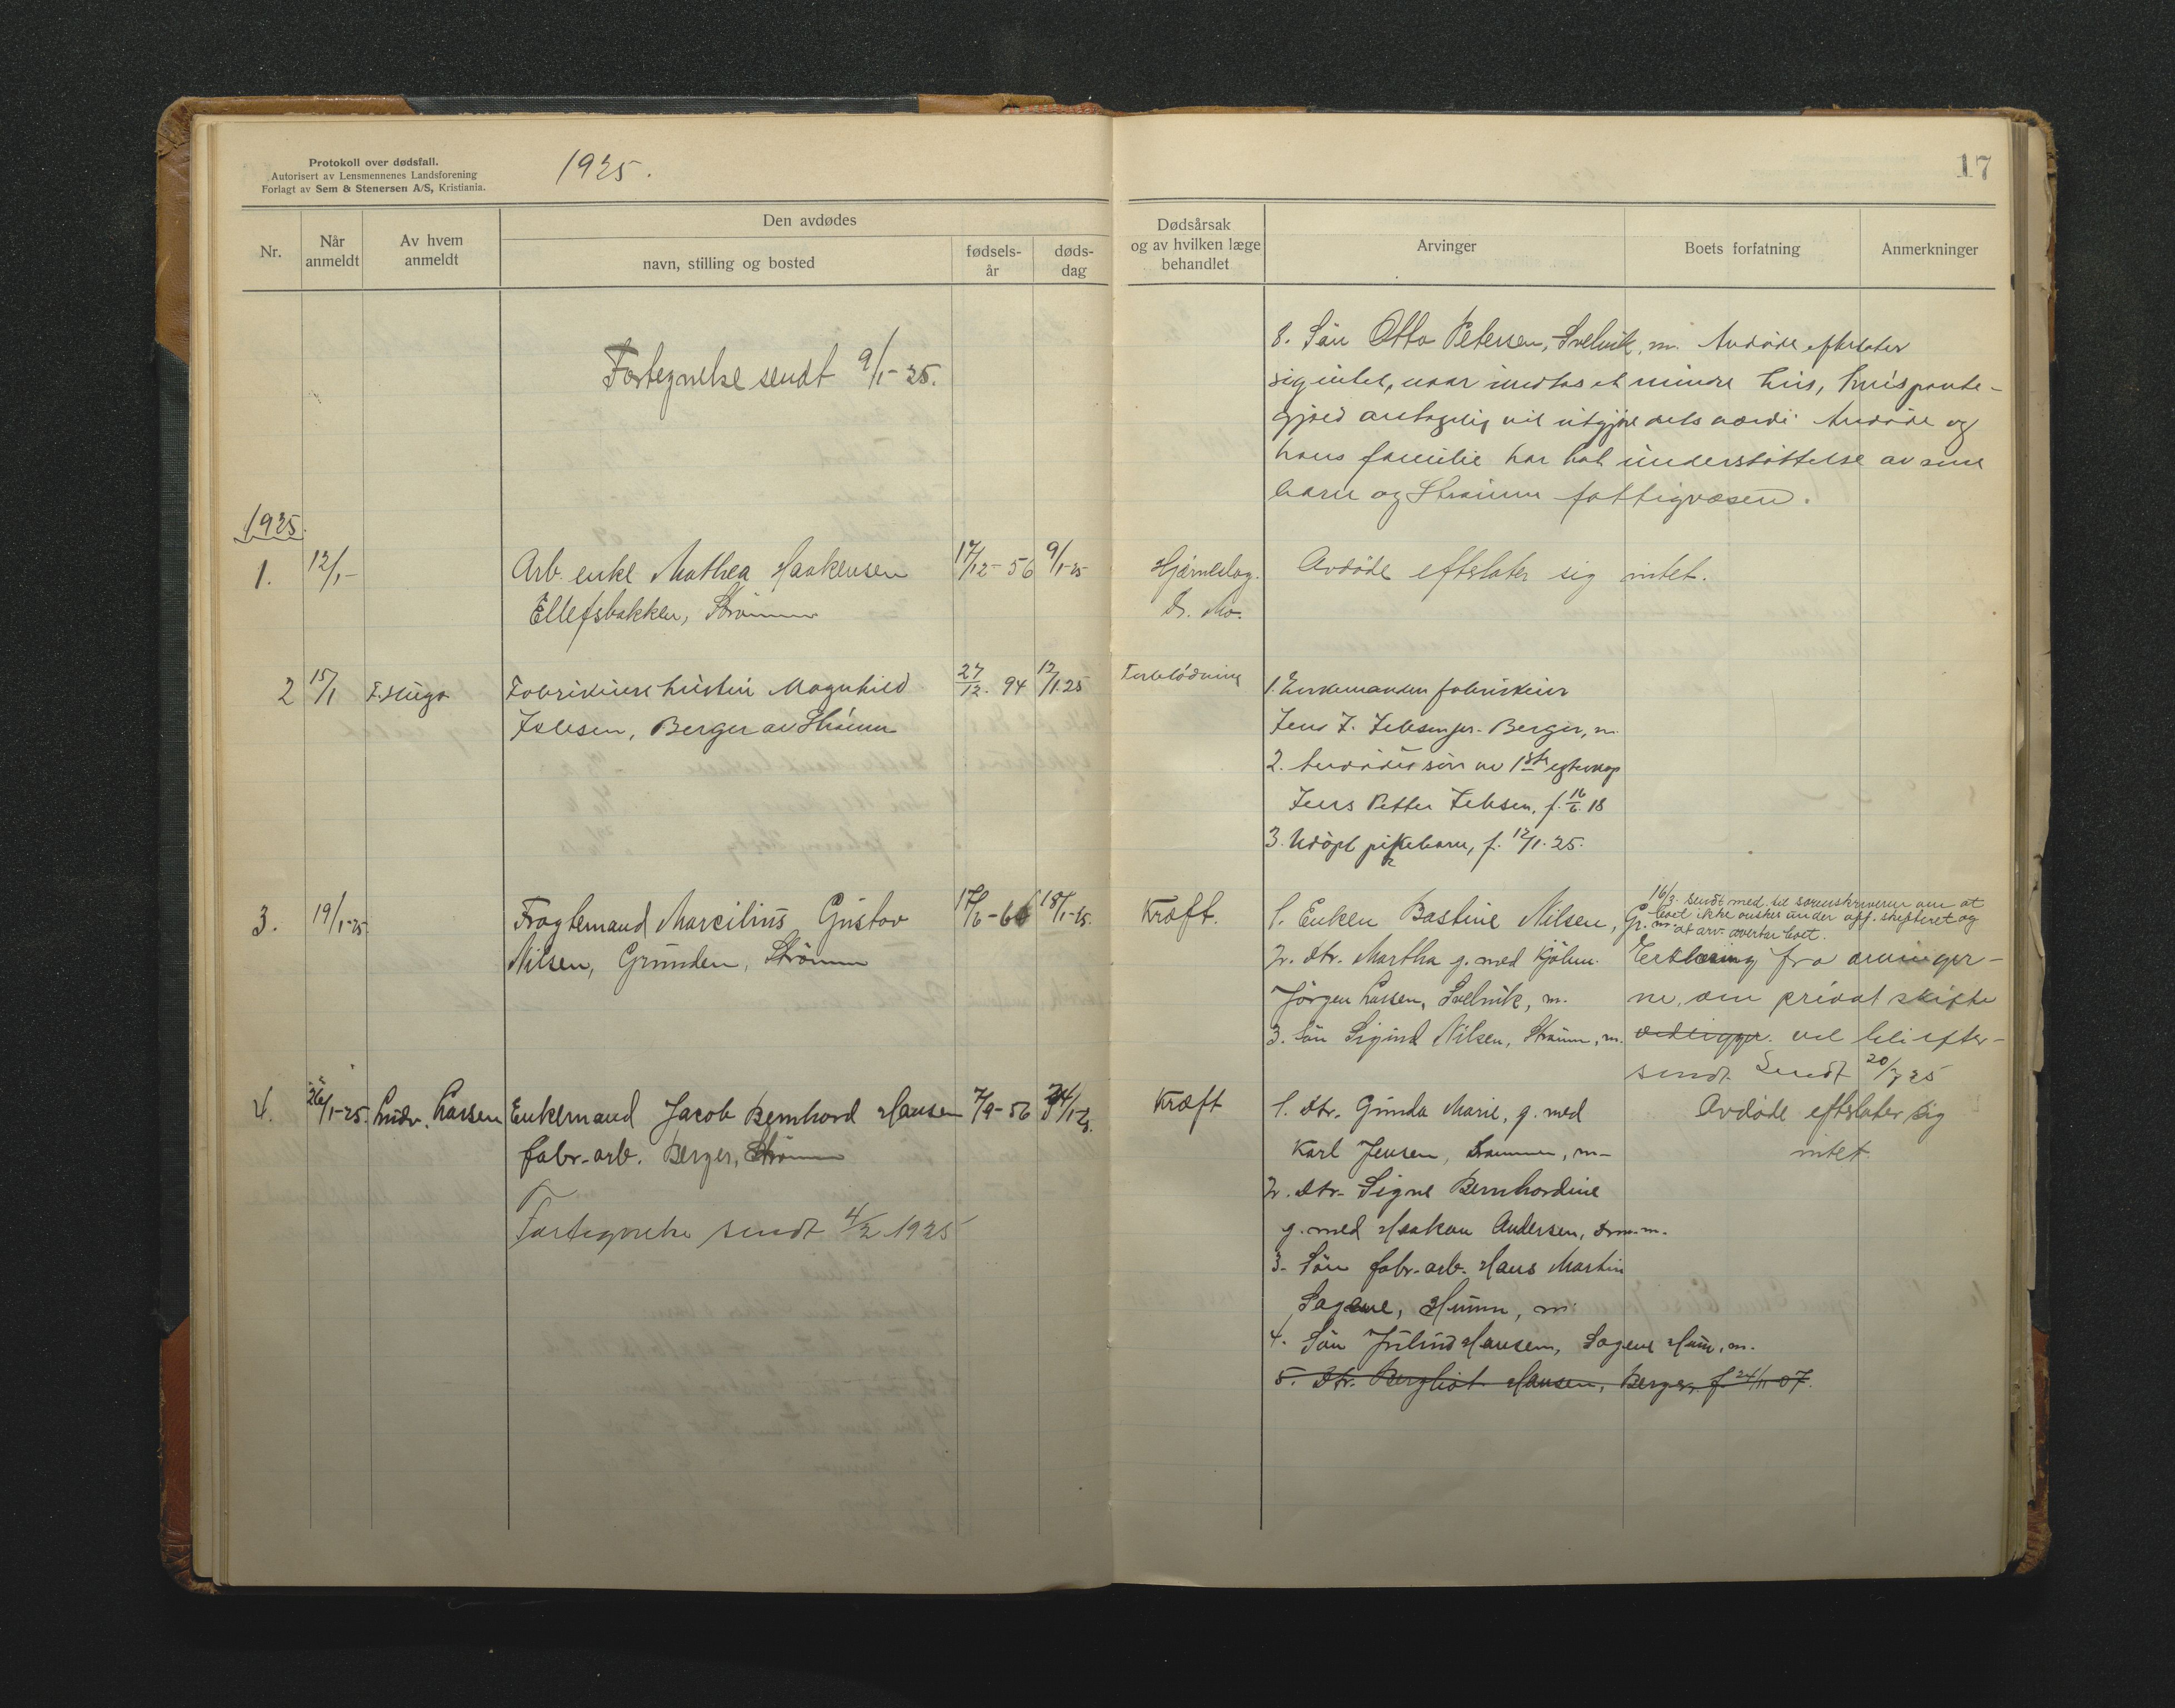 Protokoll over dødsfall.
Autorisert av Lensmennenes Landsforening
Forlagt av Sem & Stenersen A/S, Kristiania.
1925.
17
Nr.
Når anmeldt
Av hvem anmeldt
Den avdødes
navn, stilling og bosted
fødsels-år
døds-dag
Dødsårsak og av hvilken læge behandlet
Arvinger
Boets forfatning
Anmerkninger
Fortegnelse sendt 9/1-25.
8. Sön Otto Petersen, Svelvik, m. Avdöde efterlater
sig intet, naar undtas et mindre hus, hvis pante-
gjæld antagelig vil utgjöre dets værdi. Avdöde og
hans familie har hat understöttelse av sine
barn og Strömm fattigvæsen.
1925.
1. 12/1- Arb. enke Mathea Haakensen 17/12-56 9/1-25 Hjerneslag. Avdöde efterlater sig intet.
Ellefsbakken, Strömm Dr. Mo.
2 15/1 F. Hugo Fabrikeierhustru Magnhild 27/12. 94 12/1.25 Forblödning 1. Enkemanden fabrikeier
Jebsen, Berger av Strömm Jens J. Jebsen jr. Berger, m.
2. Avdödes sön av 1ste egteskap
Jens Petter Jebsen, f. 16/6. 18
3. Udöpt pikebarn, f. 12/1. 25.
3. 19/1-25 Fragtemand Marcilius Gustav 17/6-66 18/1-25. Kræft. 1. Enken Bastine Nilsen, Gr. m.
16/3. sendt med. til sorenskriveren om at
boet ikke ønskes under off. skifteret og
at arv. overtar boet.
Nilsen, Grunden, Strömm 2. Dtr. Martha g. med Kjöbm. Erklæring fra arvinger-
Jörgen Larsen, Svelvik, m. ne, om privat skifte
3. Sön Sigurd Nilsen, Strömm, m. vedligger. vil bli efter-
sendt Sendt 20/3 25
4. 26/1-25. Ludv. Larsen Enkemand Jacob Bernhard Hansen 7/9-56 24/1-25. Kræft 1. Dtr. Gunda Marie, g. med Avdöde efterlater sig
fabr.-arb. Berger, Strömm Karl Jensen, Drammen, m- intet.
2. Dtr. Signe Bernhardine
Fortegnelse sendt 4/2 1925 g. med Haakon Andersen, Drm. m.
3. Sön fabr.-arb. Hans Martin
Sagene, Hurum, m.
4. Sön Julius Hansen, Sagene Hurum, m.
5. Dtr. Bergliot Hansen, Berger, f. 24/11-07.